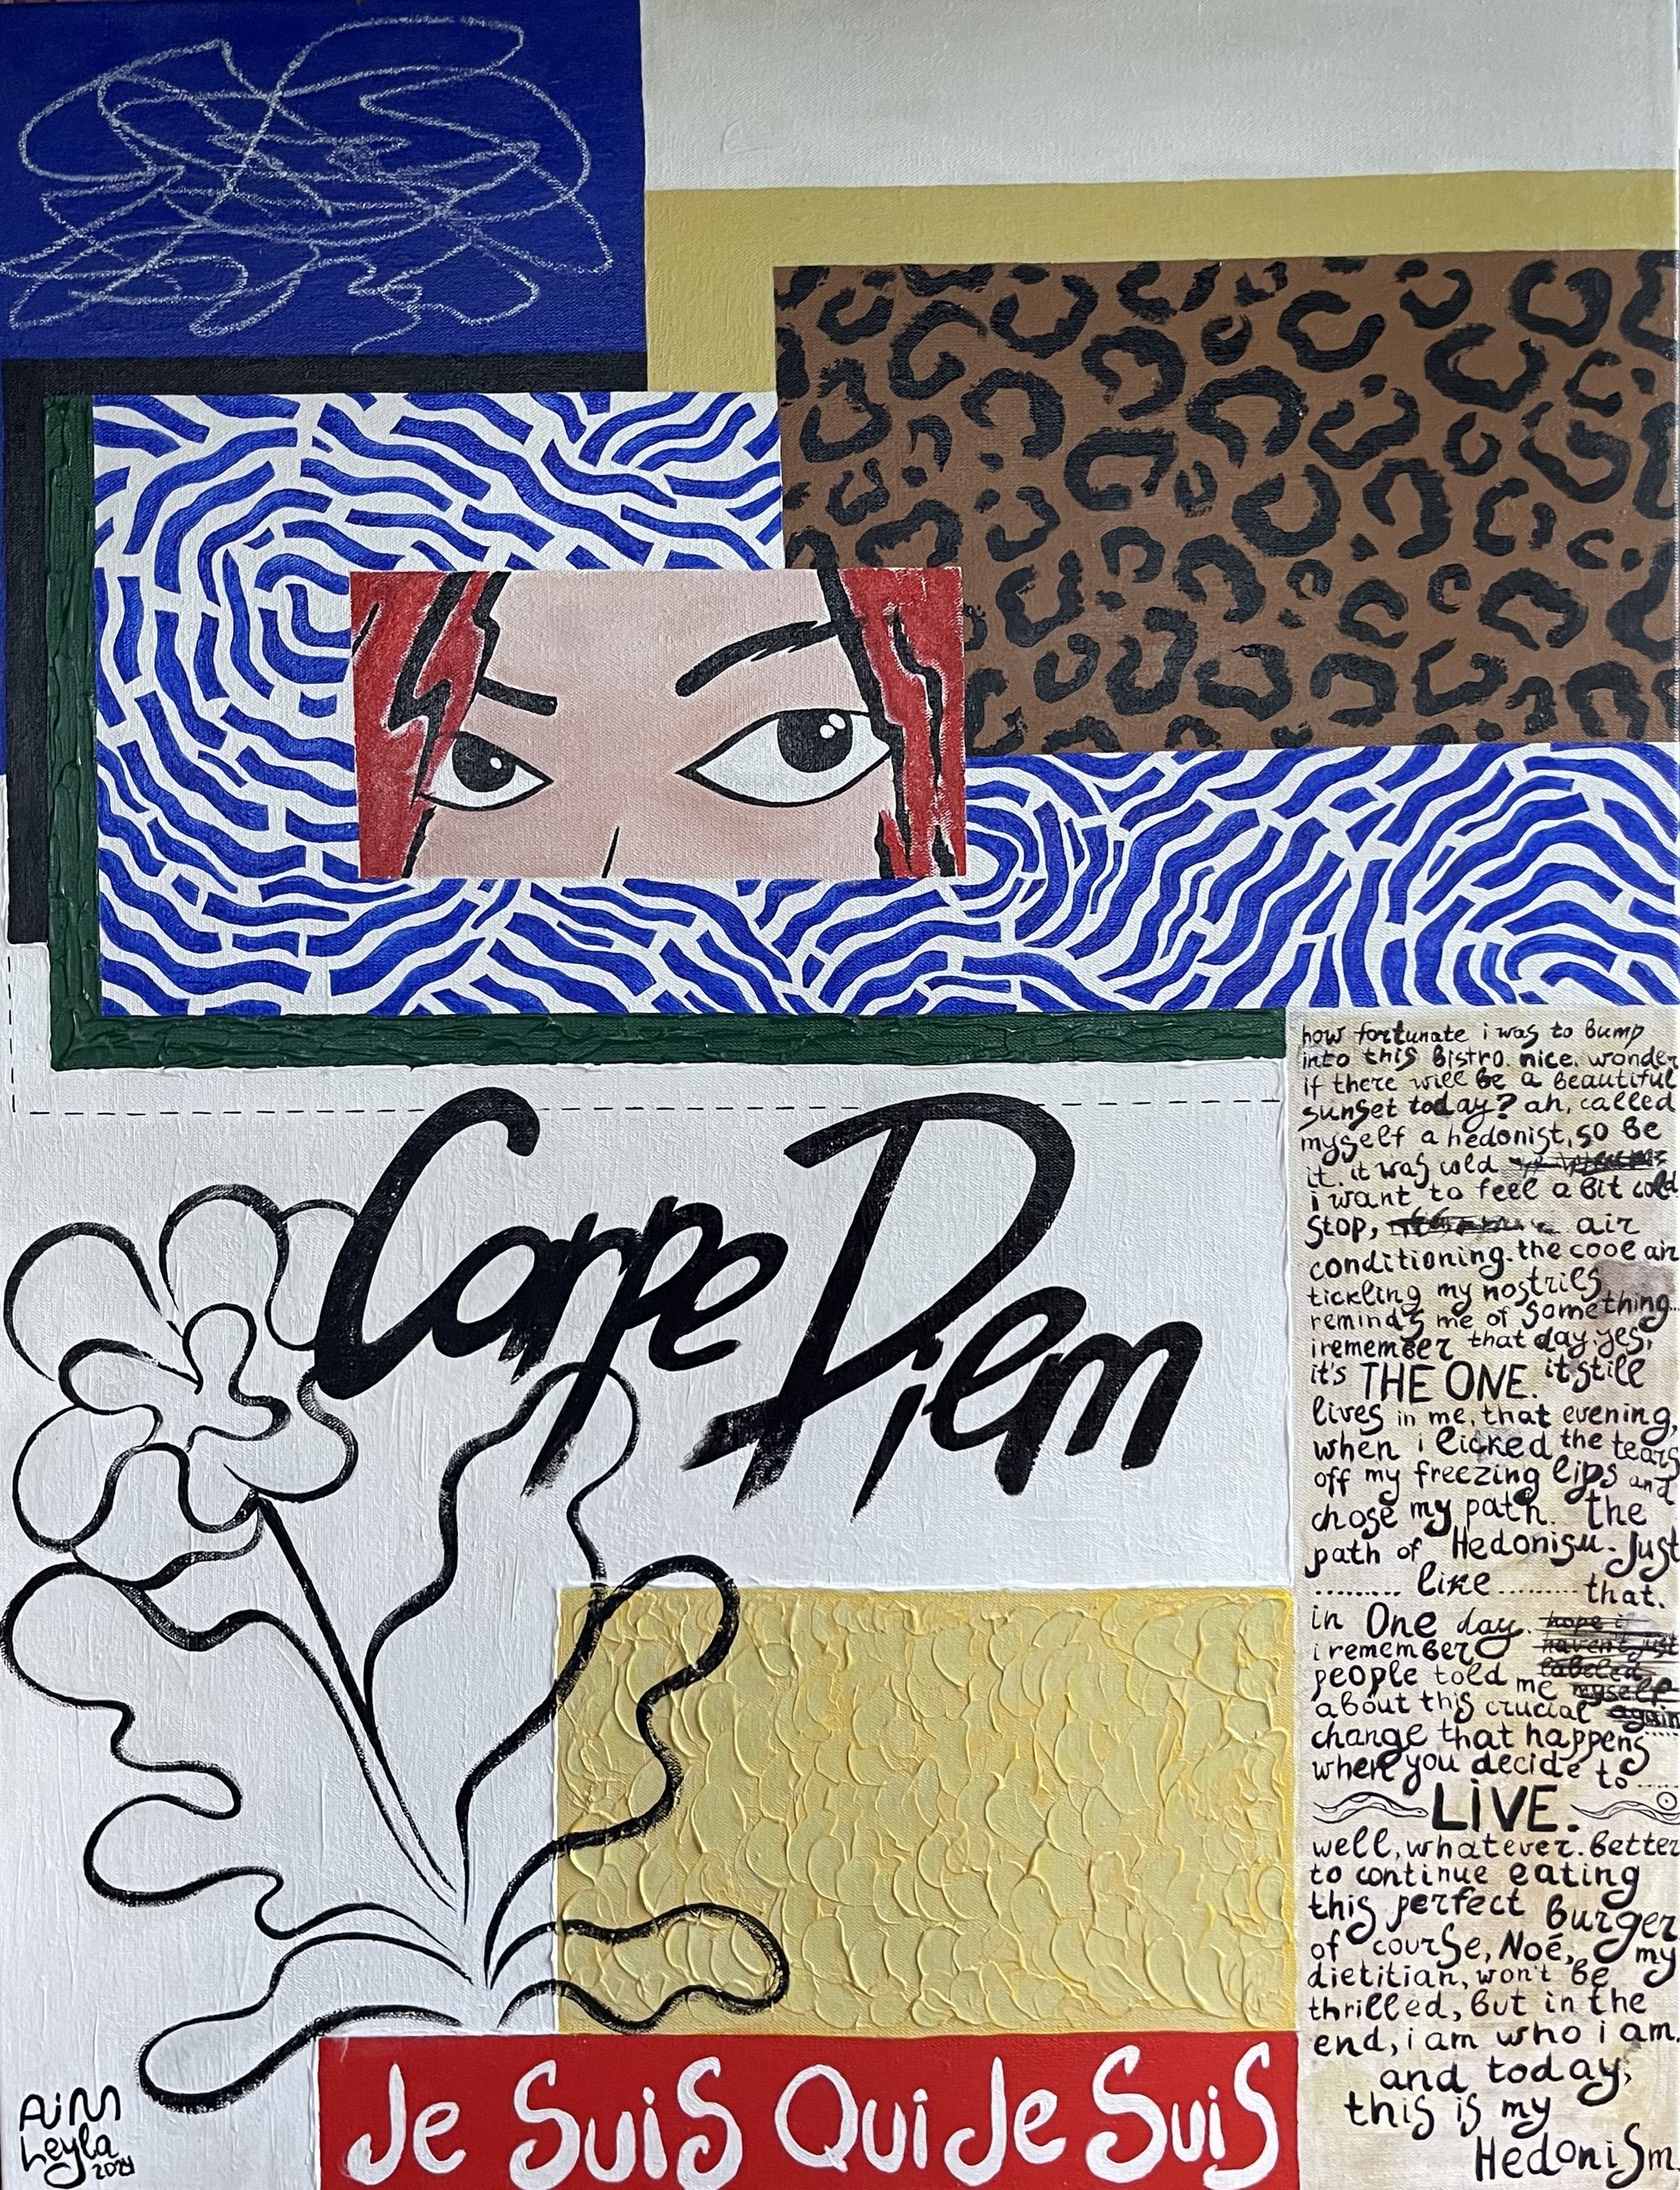 Carpe Diem
how fortunate i was to bump
into this bistro. nice. wonder
if there will be a beautiful
sunset today? ah, called
myself a hedonist, so be
it. it was cold
i want to feel a bit cold
stop, air
conditioning. the cool air
tickling my nostrils
reminds me of something...
i remember that day yes,
it's THE ONE. it still
lives in me, that evening,
when i licked the tears
off my freezing lips and
chose my path. the
path of Hedonism. Just
......... like ......... that.
in One day. hope i
i remember haven't just
people told me labeled
about this crucial myself
change that happens again
when you decide to .....
LIVE.
well, whatever. better
to continue eating
this perfect burger
of course, Noé, my
dietitian, won't be
thrilled, but in the
end, i am who i am.
and today,
this is my
Hedonism.
Je Suis Qui Je Suis
AiM
Leyla
2024